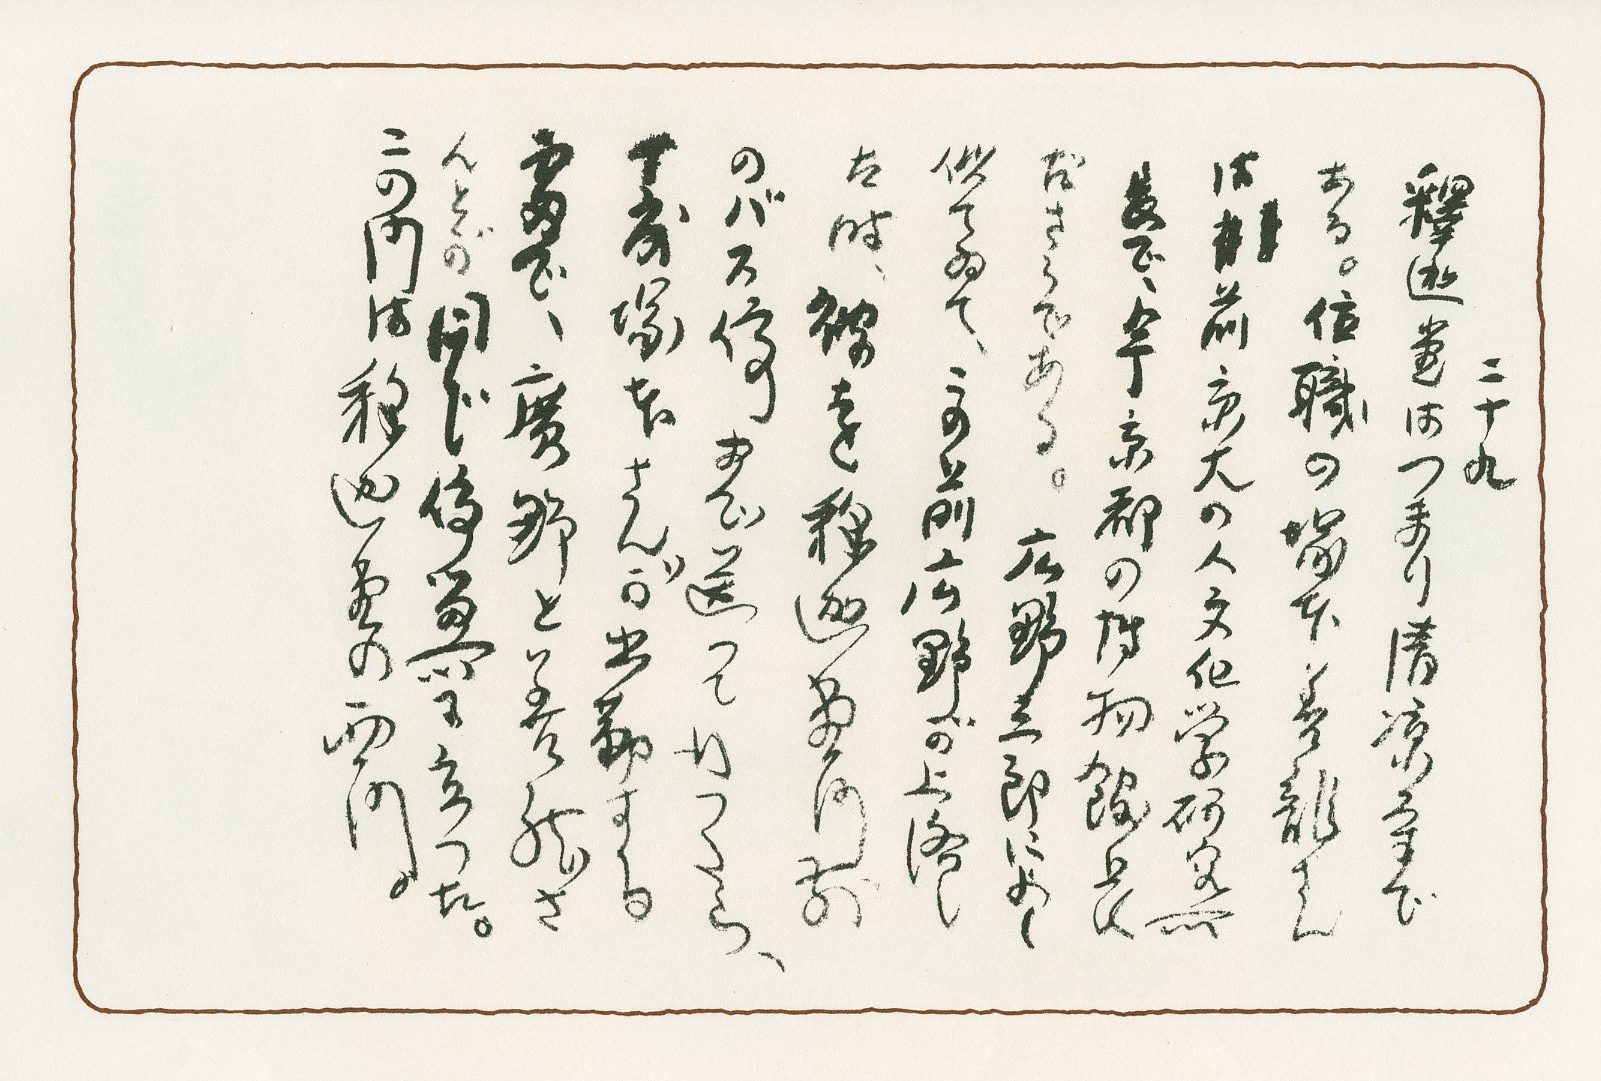 二十九
釋迦堂はつまり清凉寺で
ある。住職の塚本善龍さん
は前京大の人文化学研究所
長で、今京都の博物館長
ださうである。広野三郎によく
似てゐて、この前広野が上洛し
た時、彼を釋迦堂門前
のバス停まで送つて行つたら、
丁度塚本さんが出勤する
で、廣野と善龍さ
んとが同じ停留所に立つた。
この門は釋迦堂の西門。